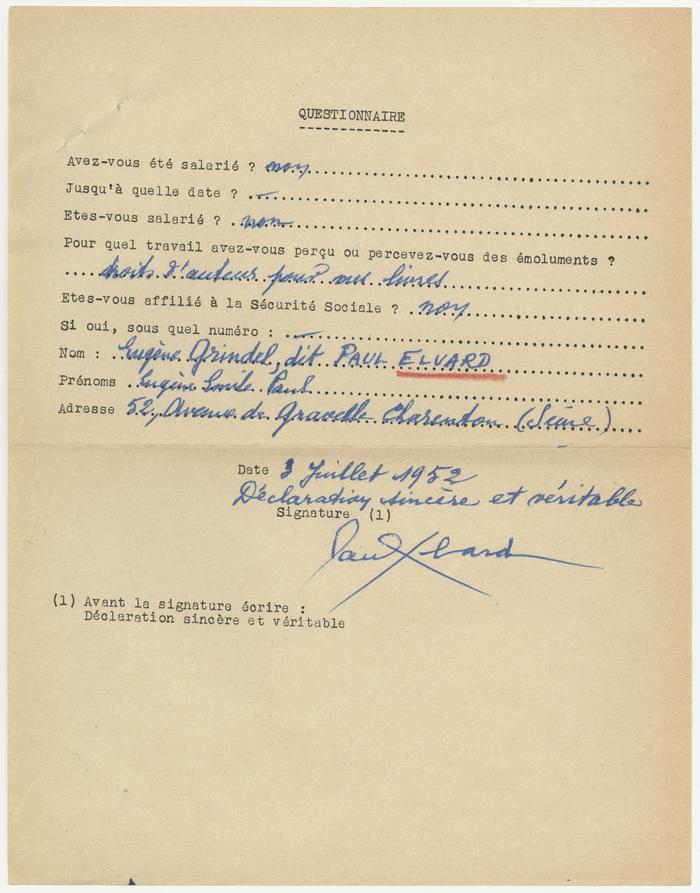 QUESTIONNAIRE
Avez-vous été salarié ? non
Jusqu'à quelle date ? —
Etes-vous salarié ? non
Pour quel travail avez-vous perçu ou percevez-vous des émoluments ?
droits d'auteur pour mes livres
Etes-vous affilié à la Sécurité Sociale ? non
Si oui, sous quel numéro : —
Nom : Eugène Grindel, dit PAUL ELUARD
Prénoms Eugène Emile Paul
Adresse 52, Avenue de Gravelle Charenton (Seine)
Date 3 Juillet 1952
Déclaration sincère et véritable
Signature (1)
Paul Eluard
(1) Avant la signature écrire :
Déclaration sincère et véritable